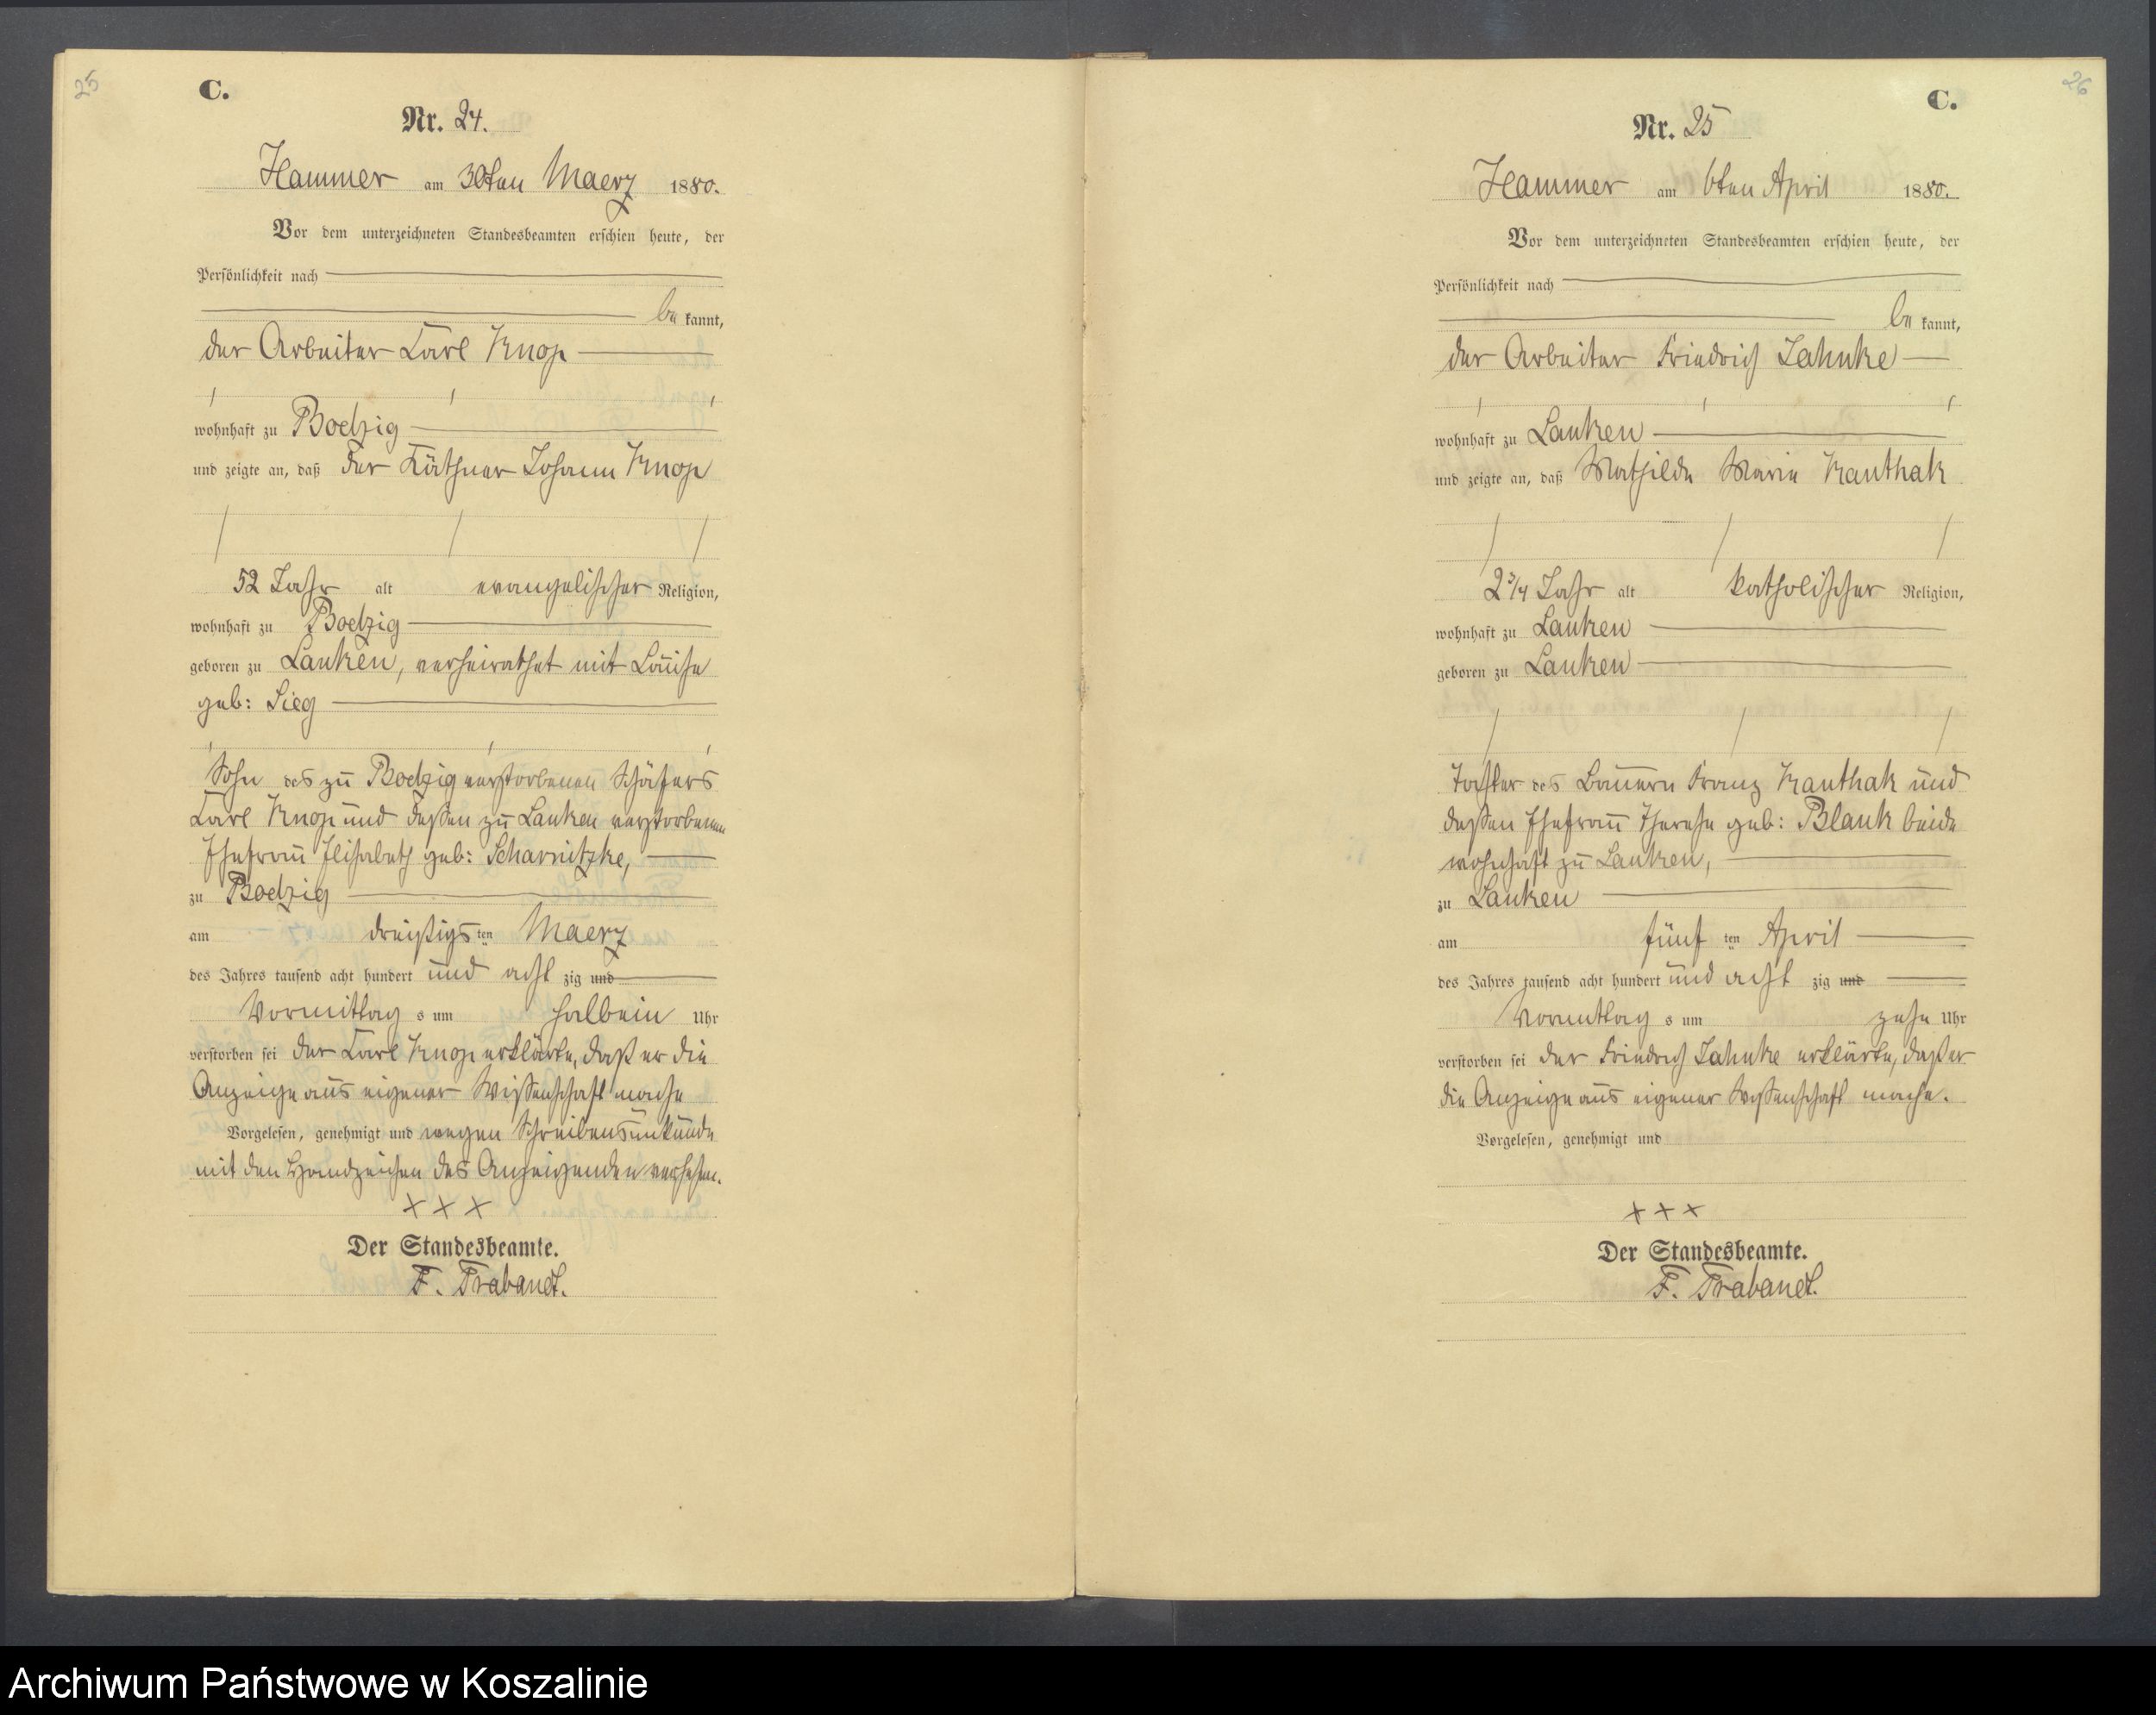 25
C.
Nr. 24.
Hammer am 30ten Maerz 1880.
Vor dem unterzeichneten Standesbeamten erschien heute, der
Persönlichkeit nach
be kannt,
der Arbeiter Carl Knop
wohnhaft zu Boetzig
und zeigte an, daß der Käthner Johann Knop
52 Jahr alt evangelischer Religion,
wohnhaft zu Boetzig
geboren zu Lanken, verheirathet mit Louise
geb: Sieg
Sohn des zu Boetzig verstorbenen Schäfers
Carl Knop und dessen zu Lanken verstorbenen
Ehefrau Elisabeth geb: Scharnitzke,
zu Boetzig
am dreißigs ten Maerz
des Jahres tausend acht hundert und acht zig und
Vormittag s um halb ein Uhr
verstorben sei der Carl Knop erklärte, daß er die
Anzeige aus eigener Wissenschaft mache
Vorgelesen, genehmigt und wegen Schreibensunkunde
mit den Handzeichen des Anzeigenden versehen.
+++
Der Standesbeamte.
F. Trabandt.
26
C.
Nr. 25
Hammer am 6ten April 1880.
Vor dem unterzeichneten Standesbeamten erschien heute, der
Persönlichkeit nach
be kannt,
der Arbeiter Friedrich Jahnke
wohnhaft zu Lanken
und zeigte an, daß Mathilde Marie Kanthak
2 3/4 Jahr alt katholischer Religion,
wohnhaft zu Lanken
geboren zu Lanken
Tochter des Bauern Franz Kanthak und
dessen Ehefrau Therese geb: Blank beide
wohnhaft zu Lanken,
zu Lanken
am fünf ten April
des Jahres tausend acht hundert und acht zig und
Vormittag s um zehn Uhr
verstorben sei der Friedrich Jahnke erklärte, daß er
die Anzeige aus eigener Wissenschaft mache.
Vorgelesen, genehmigt und
+++
Der Standesbeamte.
F. Trabandt.
Archiwum Państwowe w Koszalinie